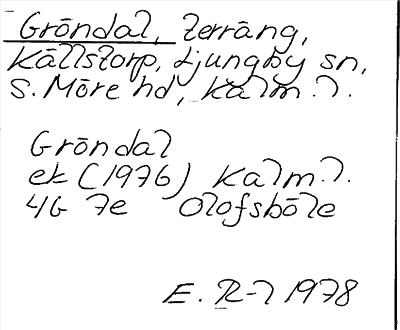 Gröndal, terräng,
Källstorp, Ljungby sn,
S. Möre hd, Kalm. l.
Gröndal
ek (1976) Kalm. l.
4G 7e Olofsböle
E. R-l 1978